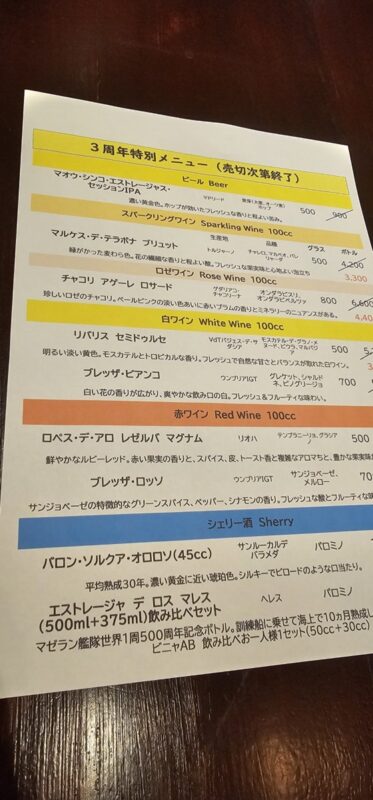 3周年特別メニュー(売切次第終了)
ビール Beer
マオウ・シンコ・エストレージャス・セッションIPA
マドリード
ホップ
500
900
濃い黄金色。ホップが効いたフレッシュな香りと程よい苦み。
スパークリングワイン Sparkling Wine 100cc
生産地 品種 グラス ボトル
マルケス・デ・テラボナ ブリュット
500 4,200
緑がかった麦わら色。花の繊細な香りと程よい酸。フレッシュな果実味と心地よい泡立ち
3,300
ロゼワイン Rose Wine 100cc
チャコリ アゲーレ ロサード
ゲタリアコ・チャコリーナ
オンダラビスリ、オンダラビベルツァ
800 6,600
珍しいロゼのチャコリ。ペールピンクの淡い色あいに赤いプラムの香りとミネラリーのニュアンスがある。
白ワイン White Wine 100cc
リバリス セミドゥルセ
500
明るい淡い黄色。モスカテルとトロピカルな香り。フレッシュで自然な甘さとバランスが取れた白ワイン。
ブレッザ・ビアンコ
ウンブリアIGT
グレケット、シャルドネ、ピノグリージョ
700
白い花の香りが広がり、爽やかな飲み口の白。フレッシュ&フルーティな味わい。
赤ワイン Red Wine 100cc
ロペス・デ・アロ レゼルバ マグナム
リオハ
テンプラニーリョ、グラシアノ
500
鮮やかなルビーレッド。赤い果実の香りと、スパイス、皮、トースト香と複雑なアロマちと、豊かな果実味が
ブレッザ・ロッソ
ウンブリアIGT
サンジョベーゼ、メルロー
サンジョベーゼの特徴的なグリーンスパイス、ペッパー、シナモンの香り。フレッシュな酸とフルーティな味
シェリー酒 Sherry
バロン・ソルクア・オロロソ(45cc)
サンルーカルデバラメダ
パロミノ
平均熟成30年。濃い黄金に近い琥珀色。シルキーでビロードのような口当たり。
エストレージャ デ ロス マレス
(500ml+375ml)飲み比べセット
ヘレス
パロミノ
マゼラン艦隊世界1周500周年記念ボトル。訓練船に乗せて海上で10ヵ月熟成し
ビニャAB 飲み比べお一人様1セット(50cc+30cc)